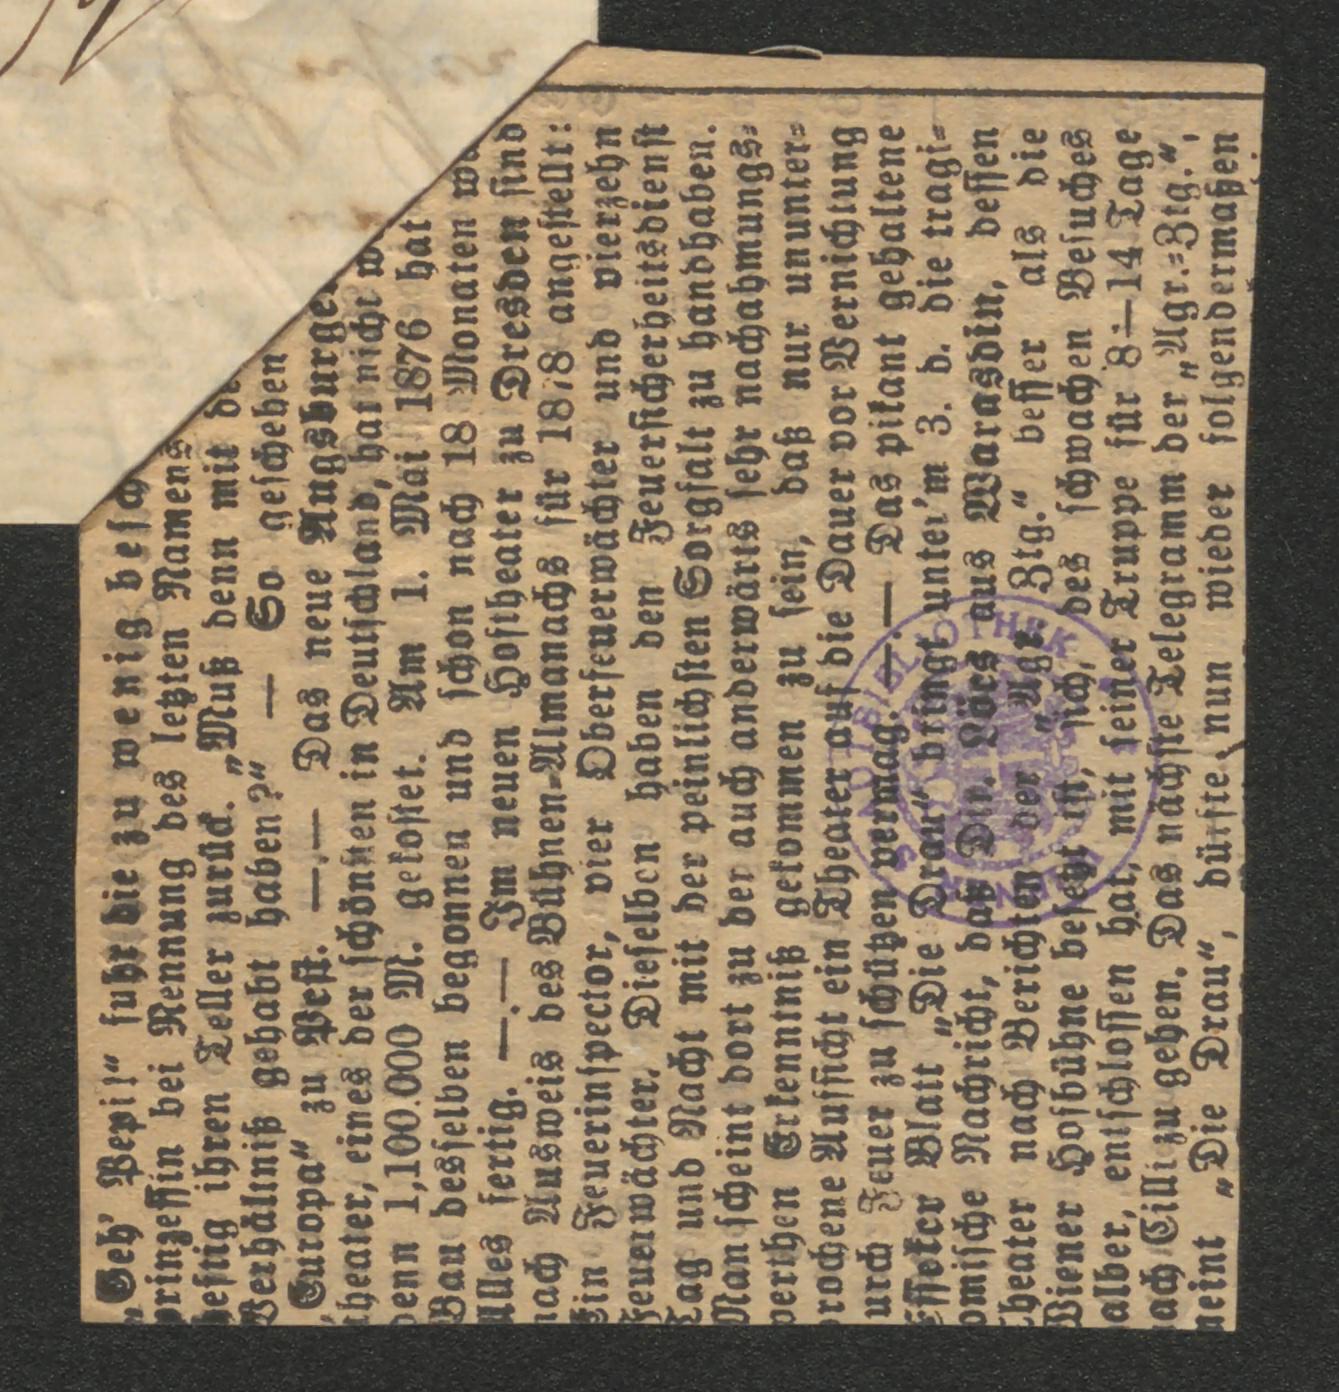 „Geh' Pepi!“ fuhr die zu wenig besch
prinzessin bei Nennung des letzten Namens
heftig ihren Teller zurück. „Muß denn mit de
Verhältniß gehabt haben?“ — So geschehen
Europa“ zu Pest. —·— Das neue Augsburger
theater, eines der schönsten in Deutschland, hat nicht w
denn 1,100.000 M. gekostet. Am 1. Mai 1876 hat
Bau desselben begonnen und schon nach 18 Monaten wa
Alles fertig. —·— Im neuen Hoftheater zu Dresden sind
nach Ausweis des Bühnen-Almanachs für 1878 angestellt:
Ein Feuerinspector, vier Oberfeuerwächter und vierzehn
Feuerwächter. Dieselben haben den Feuersicherheitsdienst
Tag und Nacht mit der peinlichsten Sorgfalt zu handhaben.
Man scheint dort zu der auch anderwärts sehr nachahmungs-
werthen Erkenntniß gekommen zu sein, daß nur ununter-
brochene Aufsicht ein Theater auf die Dauer vor Vernichtung
durch Feuer zu schützen vermag. —·— Das pikant gehaltene
Esseker Blatt „Die Drau“ bringt unter'm 3. d. die tragi-
komische Nachricht, daß Dir. Löcs aus Warasdin, dessen
Theater nach Berichten der „Agr. Ztg.“ besser als die
Wiener Hofbühne besetzt ist, sich, des schwachen Besuches
halber, entschlossen hat, mit seiner Truppe für 8—14 Tage
nach Cilli zu gehen. Das nächste Telegramm der „Agr.-Ztg.“,
meint „Die Drau“, dürfte nun wieder folgendermaßen
WIENER STADTBIBLIOTHEK